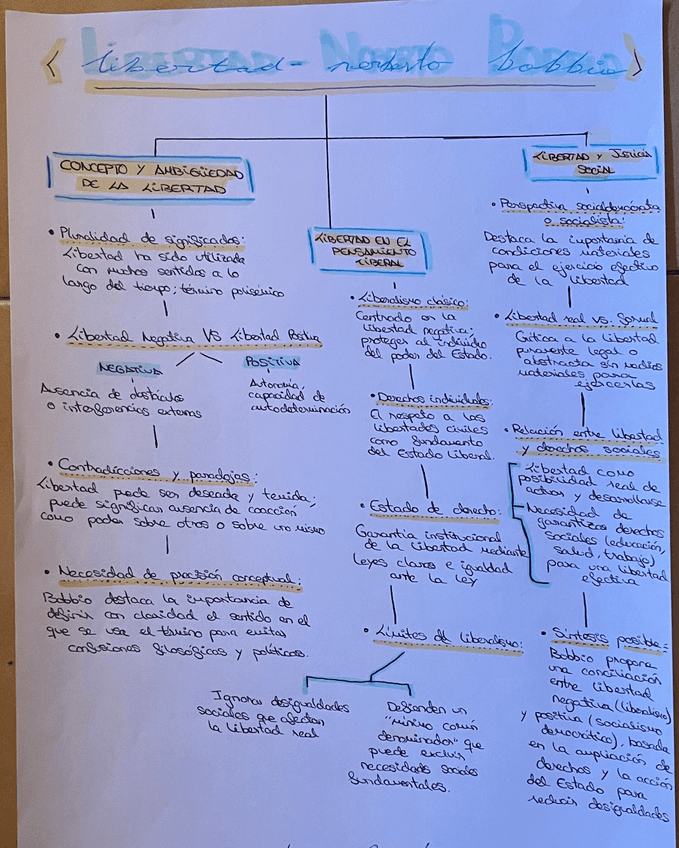 Libertad - Norberto Bobbio
CONCEPTO Y AMBIGÜEDAD
DE LA LIBERTAD
• Pluralidad de significados:
Libertad ha sido utilizada
con muchos sentidos a lo
largo del tiempo; término polisémico
• Libertad Negativa VS Libertad Positiva
NEGATIVA
Ausencia de obstáculos
o interferencias externas
POSITIVA
Autonomía,
capacidad de
autodeterminación
• Contradicciones y paradojas:
Libertad puede ser deseada y temida;
puede significar ausencia de coacción
como poder sobre otros o sobre uno mismo
• Necesidad de precisión conceptual:
Bobbio destaca la importancia de
definir con claridad el sentido en el
que se use el término para evitar
confusiones filosóficas y políticas.
LIBERTAD EN EL
PENSAMIENTO
LIBERAL
• Liberalismo clásico:
Centrado en la
libertad negativa;
proteger al individuo
del poder del Estado.
• Derechos individuales:
El respeto a las
libertades civiles
como fundamento
del Estado Liberal.
• Estado de derecho:
Garantía institucional
de la libertad mediante
leyes claras e igualdad
ante la ley
• Límites del liberalismo:
Ignorar desigualdades
sociales que afectan
la libertad real
Defienden un
"mínimo común
denominador" que
puede excluir
necesidades sociales
fundamentales.
LIBERTAD Y JUSTICIA
SOCIAL
• Perspectiva socialdemócrata
o socialista:
Destaca la importancia de
condiciones materiales
para el ejercicio efectivo
de la libertad
• Libertad real vs. formal
Crítica a la libertad
puramente legal o
abstracta sin medios
materiales para
ejercerlas
• Relación entre libertad
y derechos sociales
Libertad como
posibilidad real de
actuar y desarrollarse
Necesidad de
garantizar derechos
sociales (educación,
salud, trabajo)
para una libertad
efectiva
• Síntesis posible:
Bobbio propone
una conciliación
entre libertad
negativa (liberalismo)
y positiva (socialismo
democrático), basada
en la ampliación de
derechos y la acción
del Estado para
reducir desigualdades